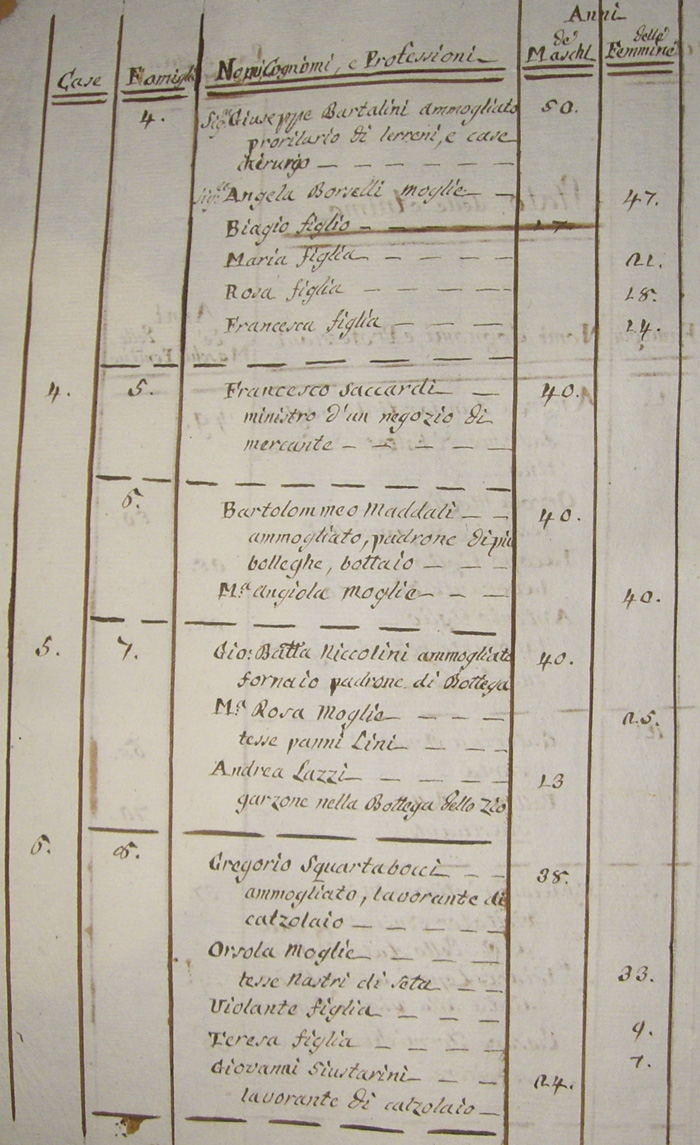 Anni
Case Famigle Nomi, Cognomi, e Professioni de' Maschl. delle Femmine
4. Sigr. Giuseppe Bartalini ammogliato 50.
proritario di terreni, e case
chirurgo
Sigra. Angela Borselli moglie 47.
Biagio figlio 17
Maria figlia 21.
Rosa figlia 18.
Francesca figlia 14.
4. 5. Francesco Saccardi 40.
ministro d'un negozio di
mercante
6. Bartolommeo Maddali 40.
ammogliato, padrone di più
botteghe, bottaio
Ma. Angiola Moglie 40.
5. 7. Gio: Batta Niccolini ammogliato 40.
fornaio padrone di Bottega
Ma. Rosa Moglie 25.
tesse panni Lini
Andrea Lazzi 13
garzone nella Bottega dello Zio
6. 8. Gregorio Squartabocci 38.
ammogliato, lavorante di
calzolaio
Orsola Moglie
tesse Nastri di seta 33.
Violante figlia 9.
Teresa figlia 7.
Giovanni Giustarini 24.
lavorante di calzolaio